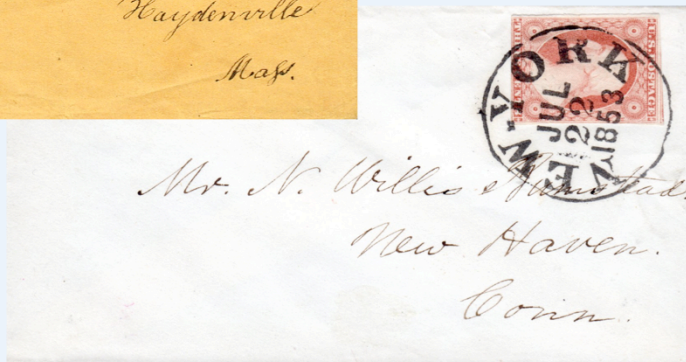 Haydenville
Mass.
U.S. POSTAGE
NEW-YORK
JUL
22
1853
Mr. N. Willis Bumstead.
New Haven.
Conn.